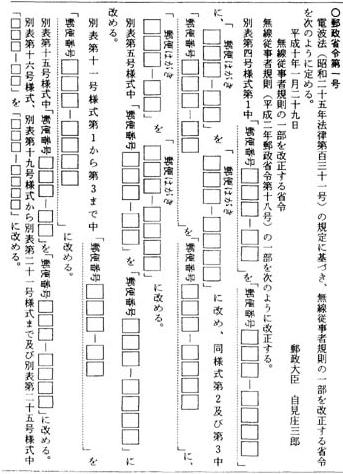 〇郵政省令第一号
電波法（昭和二十五年法律第百三十一号）の規定に基づき、無線従事者規則の一部を改正する省令
を次のように定める。
平成十年一月二十九日
郵政大臣 自見庄三郎
無線従事者規則の一部を改正する省令
無線従事者規則（平成二年郵政省令第十八号）の一部を次のように改正する。
別表第四号様式第1中「郵便番号□□□－□□」を「郵便番号□□□－□□□□」
に、「郵便はがき□□□－□□」を「郵便はがき□□□－□□□□」に改め、同様式第2及び第3中
「郵便番号□□□－□□」を「郵便番号□□□－□□□□」に、
「郵便はがき□□□－□□」を「郵便はがき□□□－□□□□」に改める。
別表第五号様式中「郵便番号□□□－□□」を「郵便番号□□□－□□□□」に
改める。
別表第十一号様式第1から第3まで中「郵便番号□□□－□□」を
「郵便番号□□□－□□□□」に改める。
別表第十五号様式中「郵便番号□□□－□□」を「郵便番号□□□－□□□□」に改める。
別表第十六号様式、別表第十九号様式から別表第二十一号様式まで及び別表第二十五号様式中
「□□□－□□」を「□□□－□□□□」に改める。